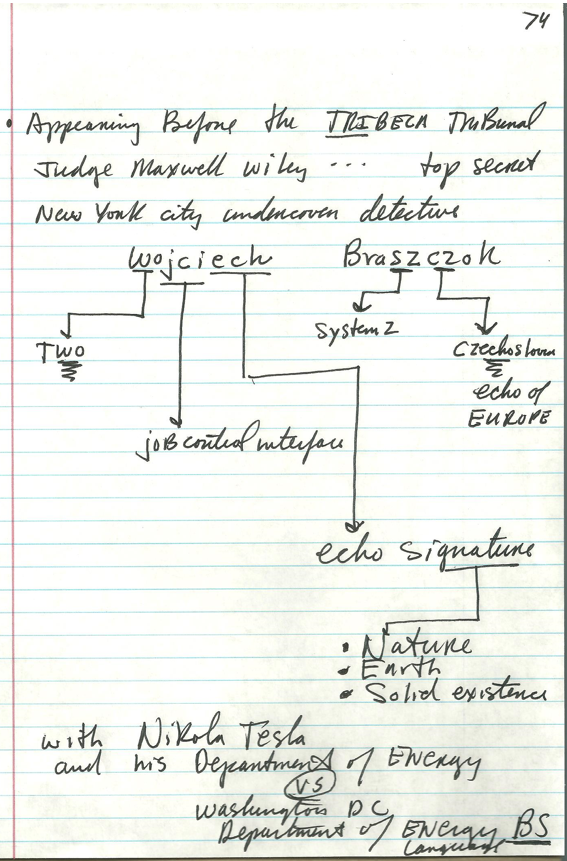 74
• Appearing Before the TRIBECA TriBunal
Judge Maxwell Wiley ... top secret
New York city undercover detective
Wojciech Braszczok
Two
System Z
Czechosloven
echo of
EUROPE
joB control interface
echo signature
• Nature
• Earth
• Solid existence
with Nikola Tesla
and his Department of ENergy
VS
Washington DC
Department of ENergy BS
Language